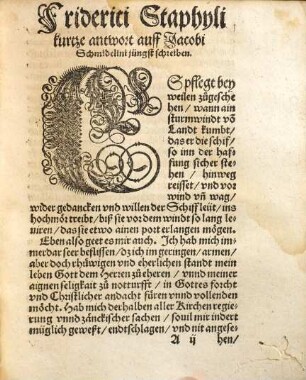 Friderici Staphyli
kurtze antwort auff Jacobi
Schmidelini jüngst schreiben.
ES pflegt bey
weilen zügesche
hen / wann ain
sturmwindt võ
Landt kumbt /
das er die schif /
so inn der haf
fung sicher ste
hen / hinweg
reisset / vnd vor
wind vñ wag /
wider gedancken vnd willen der Schiffleüt / ins
hochmöt treibt / biß sie vor dem windt so lang le
uiren / das sie etwo ainen port erlangen mögen.
Eben also geet es mir auch. Ich hab mich im
merdar seer beflissen / dz ich im geringen / armen /
aber doch rhüwigen vnd eherlichen standt mein
leben Gott dem Herren zü eheren / vnnd meiner
aignen seligkait zü notturfft / in Gottes forcht
vnd Christlicher andacht füren vnnd vollenden
möcht. Hab mich derhalben aller Kirchen regie
rung vnnd zänckischer sachen / souil mir indert
müglich geweßt / endtschlagen / vnd nit angese
A ij hen /